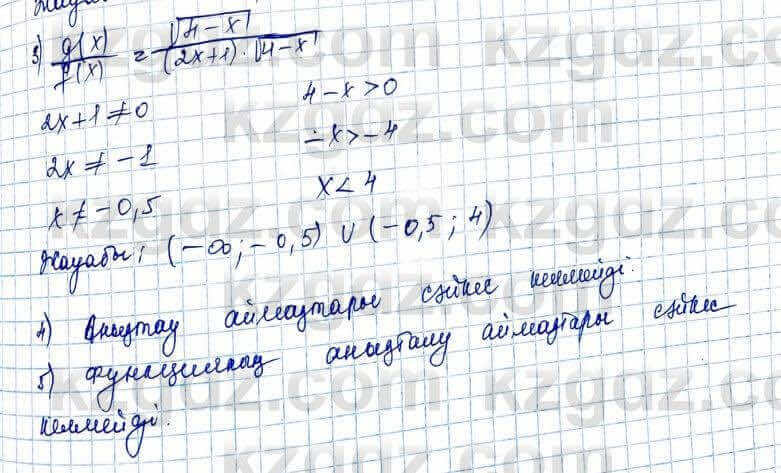 3) g(x)/f(x) = √4-x / (2x+1)·√4-x
2x+1≠0 4-x>0
2x≠-1 -x>-4
x≠-0,5 x<4
Жауабы: (-∞;-0,5) ∪ (-0,5; 4)
4) Анықтау аймақтары сәйкес келмейді.
5) Функцияның анықталу аймақтары сәйкес
келмейді.
kzgdz.com